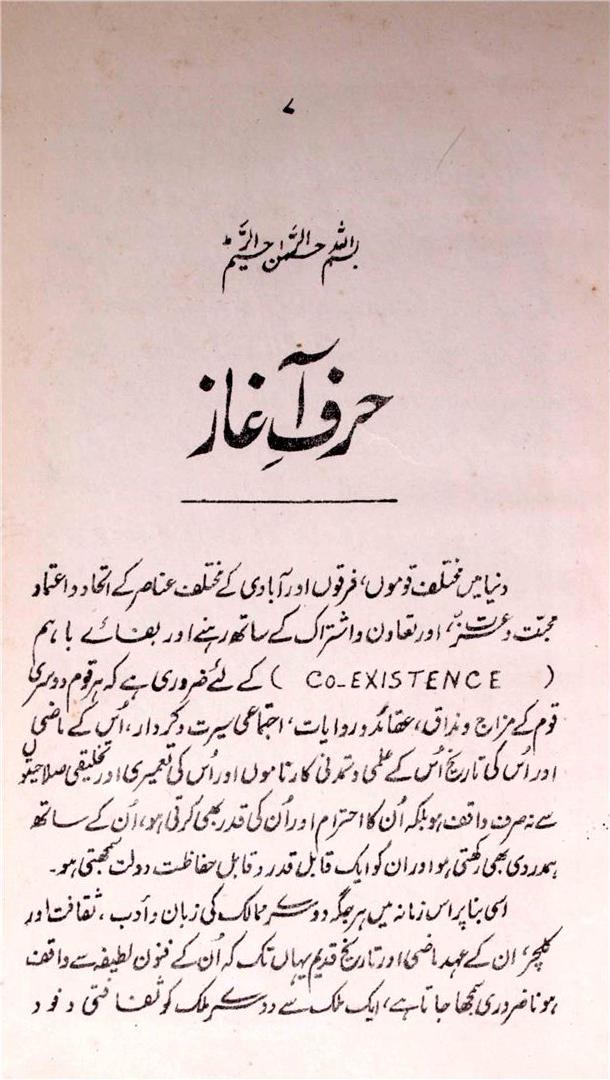 ۷
بسم اللہ الرحمٰن الرحیم ؕ
حرفِ آغاز
دنیا میں مختلف قوموں، فرقوں اور آبادی کے مختلف عناصر کے اتحاد و اعتماد
محبت و عزت، اور تعاون و اشتراک کے ساتھ رہنے اور بقائے باہم
( CO-EXISTENCE ) کے لئے ضروری ہے کہ ہر قوم دوسری
قوم کے مزاج و مذاق، عقائد و روایات، اجتماعی سیرت و کردار، اُس کے ماضی
اور اُس کی تاریخ اُس کے علمی و تمدنی کارناموں اور اُس کی تعمیری اور تخلیقی صلاحیتوں
سے نہ صرف واقف ہو بلکہ اُن کا احترام اور اُن کی قدر بھی کرتی ہو، اُن کے ساتھ
ہمدردی بھی رکھتی ہو اور ان کو ایک قابل قدر و قابل حفاظت دولت سمجھتی ہو۔
اسی بنا پر اس زمانہ میں ہر جگہ دوسرے ممالک کی زبان و ادب، ثقافت اور
کلچر، ان کے عہد ماضی اور تاریخ قدیم یہاں تک کہ اُن کے فنون لطیفہ سے واقف
ہونا ضروری سمجھا جاتا ہے، ایک ملک سے دوسرے ملک کو ثقافتی وفود